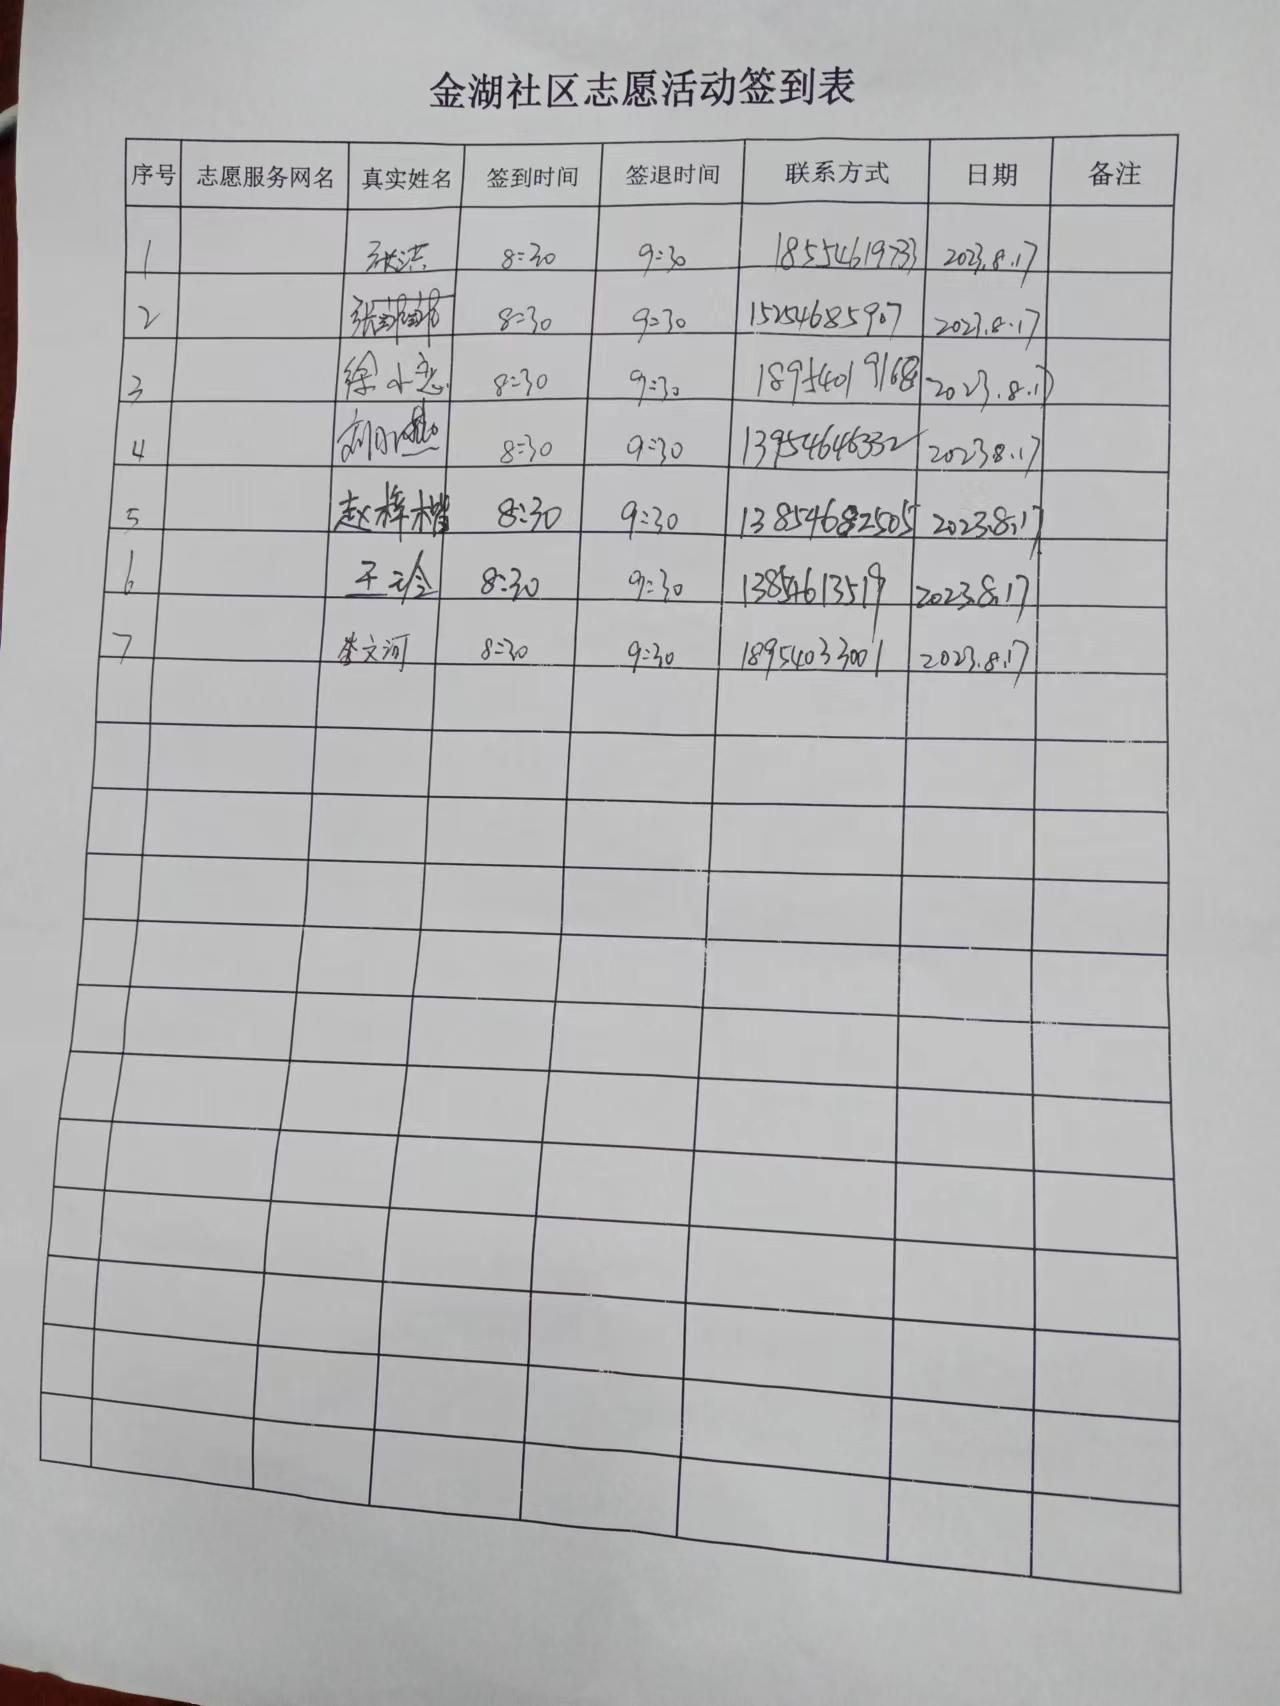 金湖社区志愿活动签到表
序号 志愿服务网名 真实姓名 签到时间 签退时间 联系方式 日期 备注
1 张洪 8:30 9:30 18554619733 2023.8.17
2 8:30 9:30 15254685907 2023.8.17
3 徐小恋 8:30 9:30 18954019168 2023.8.17
4 8:30 9:30 13954646332 2023.8.17
5 赵梓楷 8:30 9:30 13854682505 2023.8.17
6 王玲 8:30 9:30 13854613519 2023.8.17
7 李文河 8:30 9:30 18954033001 2023.8.17